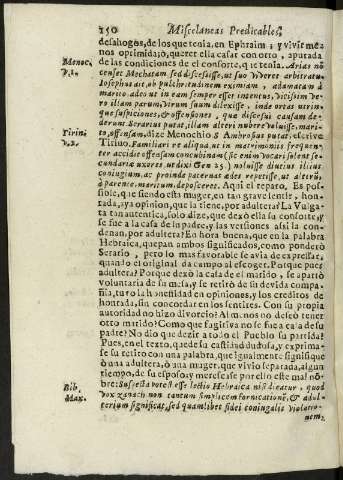 150 Miscelaneas Predicables,
desahogos, de los que tenia, en Ephraim; y vivir mẽa
nos oprimida; ò, querer ella casar con otro, apurada
de las condiciones de el consorte, q̃ tenia. Arias nõ
Menoc. censet Mocham sed discessisse, ut suo viveret arbitratu
v. 2. Iosephus ait, ob pulchritudinem eximiam, adamatam à
marito adeo ut in eam semper esset intentus, vicissim ve-
ro illam parum, virum suum dilexisse, inde ortas utrin-
que suspiciones, & offensiones, qua discessus causam de-
derunt Serarius putat, illam alteri nubere voluisse, mari-
Tirini to, offensam, dize Menochio Ambrosius putat, escrive
v. 2. Tirino. Familiares re aliqua, ut in matrimoniis frequen-
ter accidit offensam concubinam (sic enim vocari solent se-
cundaria uxores, ut dixi Gen 25) noluisse diutius illius
coniugium, ac proinde paternas ades repetisse, ut alterũ,
à parente, maritum deposceret. Aqui el reparo. Es pos-
sible, que siendo esta muger, en tan grave sentir, hon-
rada, aya opinion, que la tiene, por adultera? La Vulga-
ta tan autentica, solo dize, que dexò ella su consorte, y
se fue à la casa de su padre, y las versiones assi la con-
denan, por adultera? En hora buena, que en la palabra
Hebraica, quepan ambos significados, como ponderò
Serario, pero lo mas favorable se avia de expressar,
quando el original da campo al escoger. Porque pues
adultera? Porque dexò la casa de el marido, se apartò
voluntaria de su mesa, y se retirò de su devida compa-
ñia, turò la honestidad en opiniones, y los creditos de
honrada, sin concordar en los sentires. Con su propia
autoridad no hizo divorcio? Al menos no deseò tener
otro marido? Como que fugitiva no se fue a casa de su
padre? No dio que dezir a todo el Pueblo su partida?
Pues, en el texto, quede su castidad dudosa, y exprima-
se su retiro con una palabra, que igualmente signifique
ò una adultera, ò una muger, que vivio separada, algun
tiempo, de su esposo, y merescase por ello este mal nõ-
Bib. bre: Sufpecta potest esse lectio Hebraica nisi dicatur, quod
Max. vox zanach non tantum simplicem fornicationẽ, & adul-
terium significat, sed quamlibet fidei coniugalis violatio-
nem,